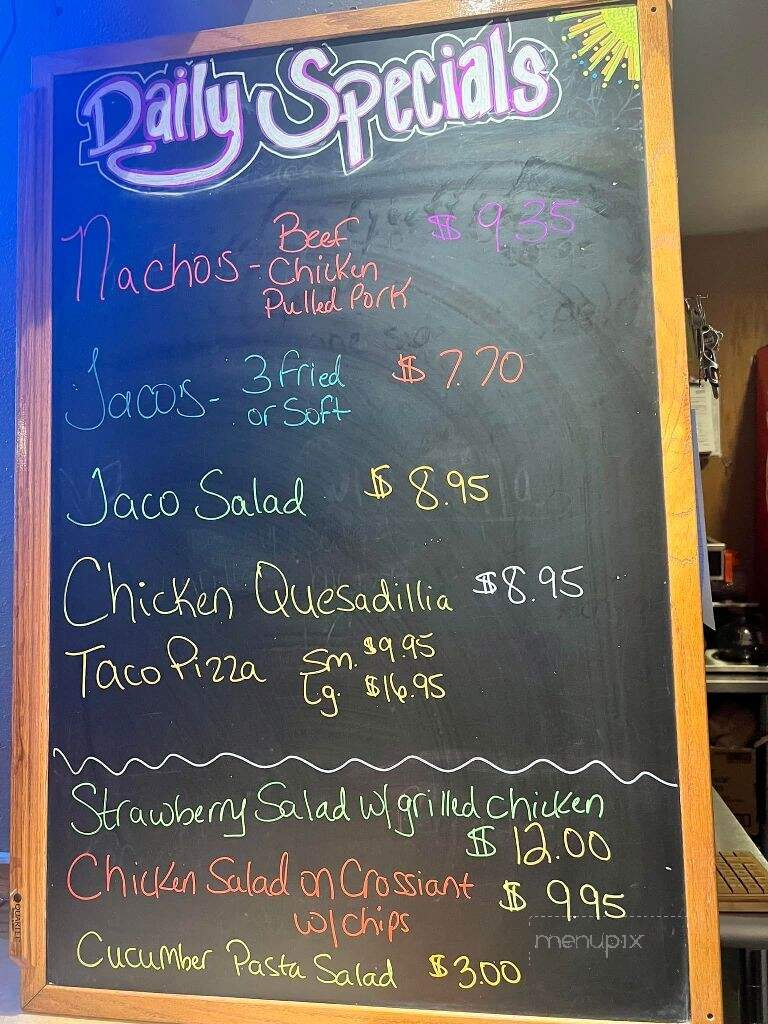 Daily Specials
Beef
$ 9.35
Nacho's - Chicken
Pulled Pork
Taco's - 3 Fried $ 7.70
or Soft
Taco Salad $ 8.95
Chicken Quesadillia $8.95
Taco Pizza Sm. $9.95
Lg. $16.95
Strawberry Salad w/grilled chicken
$ 12.00
Chicken Salad on Crossiant $ 9.95
w/chips
Cucumber Pasta Salad $3.00
QUARTET
menupix